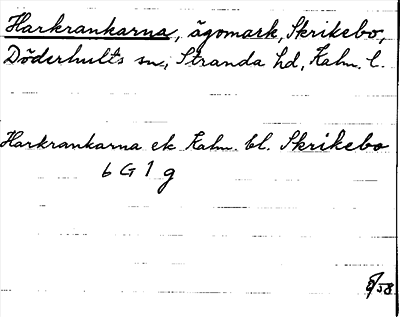 Harkrankarna, ägomark, Skrikebo,
Döderhults sn, Stranda hd, Kalm. l.
Harkrankarna ek Kalm. bl. Skrikebo
6 G 1 g
/58